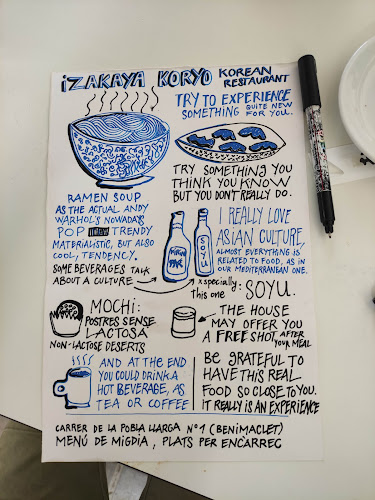 iZAKAYA KORYO KOREAN
RESTAURANT
TRY TO EXPERIENCE
SOMETHING QUITE NEW
FOR YOU.
TRY SOMETHING YOU
THINK YOU KNOW
BUT YOU DON'T REALLY DO.
RAMEN SOUP
AS THE ACTUAL ANDY
WARHOL'S NOWADAYS
POP TRENDY
MATERIALISTIC, BUT ALSO
COOL, TENDENCY.
SOME BEVERAGES TALK
ABOUT A CULTURE
SOYU
I REALLY LOVE
ASIAN CULTURE,
ALMOST EVERYTHING IS
RELATED TO FOOD, AS IN
OUR MEDITERRANEAN ONE.
xspecially
this one: SOYU.
MOCHI:
POSTRES SENSE
LACTOSA
NON-LACTOSE DESERTS
THE HOUSE
MAY OFFER YOU
A FREE SHOT AFTER
YOUR MEAL
AND AT THE END
YOU COULD DRINK A
HOT BEVERAGE, AS
TEA OR COFFEE
BE GRATEFUL TO
HAVE THIS REAL
FOOD SO CLOSE TO YOU.
IT REALLY IS AN EXPERIENCE
CARRER DE LA POBLA LLARGA Nº1 (BENIMACLET)
MENÚ DE MIGDIA, PLATS PER ENCÀRREC